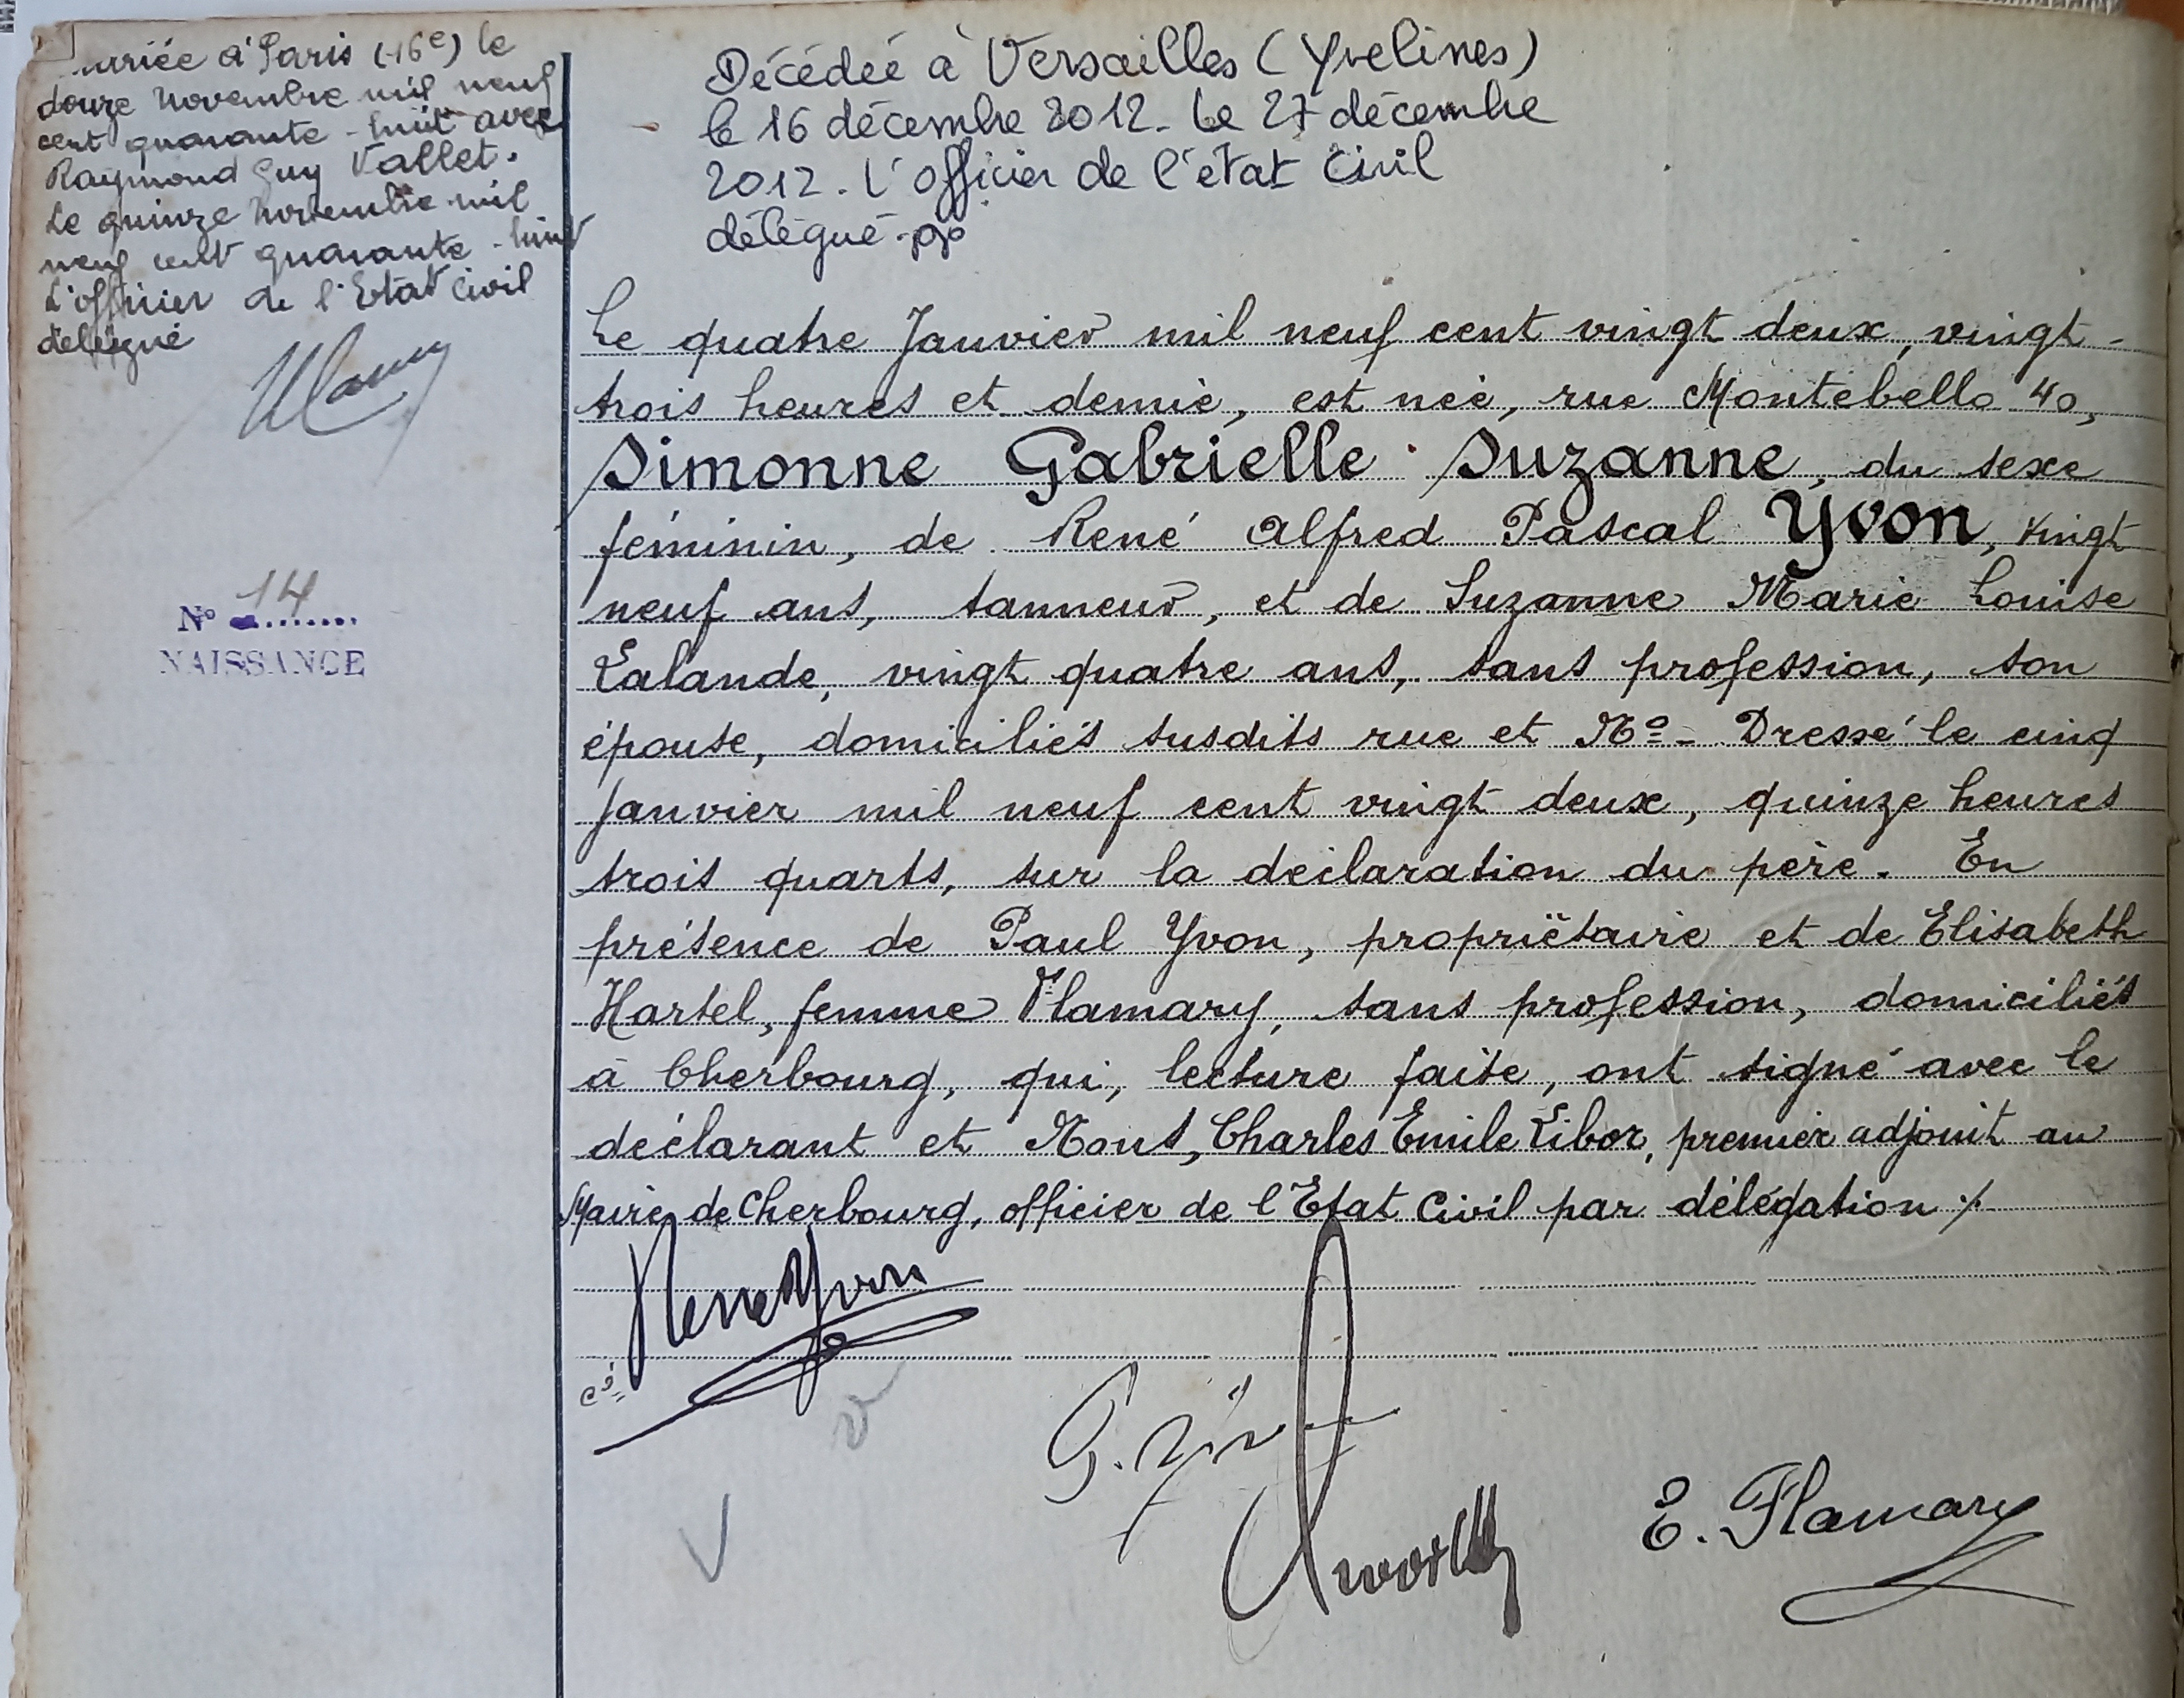 mariée à Paris (16e) le
douze novembre mil neuf
cent quarante-huit avec
Raymond Guy Vallet.
Le quinze novembre mil
neuf cent quarante-huit
L'officier de l'Etat civil
délégué
N° 14
NAISSANCE
Décédée à Versailles (Yvelines)
le 16 décembre 2012. Le 27 décembre
2012. L'officier de l'état civil
délégué.
Le quatre Janvier mil neuf cent vingt deux, vingt-
trois heures et demie, est née, rue Montebello 40,
Simonne Gabrielle Suzanne, du sexe
féminin, de René Alfred Pascal Yvon, vingt
neuf ans, tanneur, et de Suzanne Marie Louise
Lalande, vingt quatre ans, sans profession, son
épouse, domiciliés susdits rue et No- Dressé le cinq
Janvier mil neuf cent vingt deux, quinze heures
trois quarts, sur la déclaration du père. En
présence de Paul Yvon, propriétaire et de Elisabeth
Hartel, femme Flamary, sans profession, domiciliés
à Cherbourg, qui, lecture faite, ont signé avec le
déclarant et Nous, Charles Emile Libor, premier adjoint au
Maire de Cherbourg, officier de l'Etat Civil par délégation ./.
René Yvon
E. Flamary